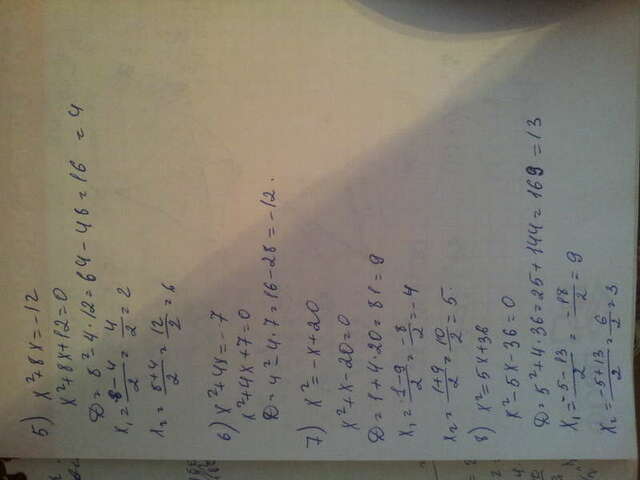 5) x²+8x=-12
x²+8x+12=0
D=8²-4·12=64-48=16 = 4
x₁=(8-4)/2=4/2=2
x₂=(8+4)/2=12/2=6
6) x²+4x=-7
x²+4x+7=0
D=4²-4·7=16-28=-12.
7) x²=-x+20
x²+x-20=0
D=1+4·20=81=9
x₁=(1-9)/2=-8/2=-4
x₂=(1+9)/2=10/2=5.
8) x²=5x+36
x²-5x-36=0
D=5²+4·36=25+144=169=13
x₁=(-5-13)/2=-18/2=9
x₂=(-5+13)/2=6/2=3